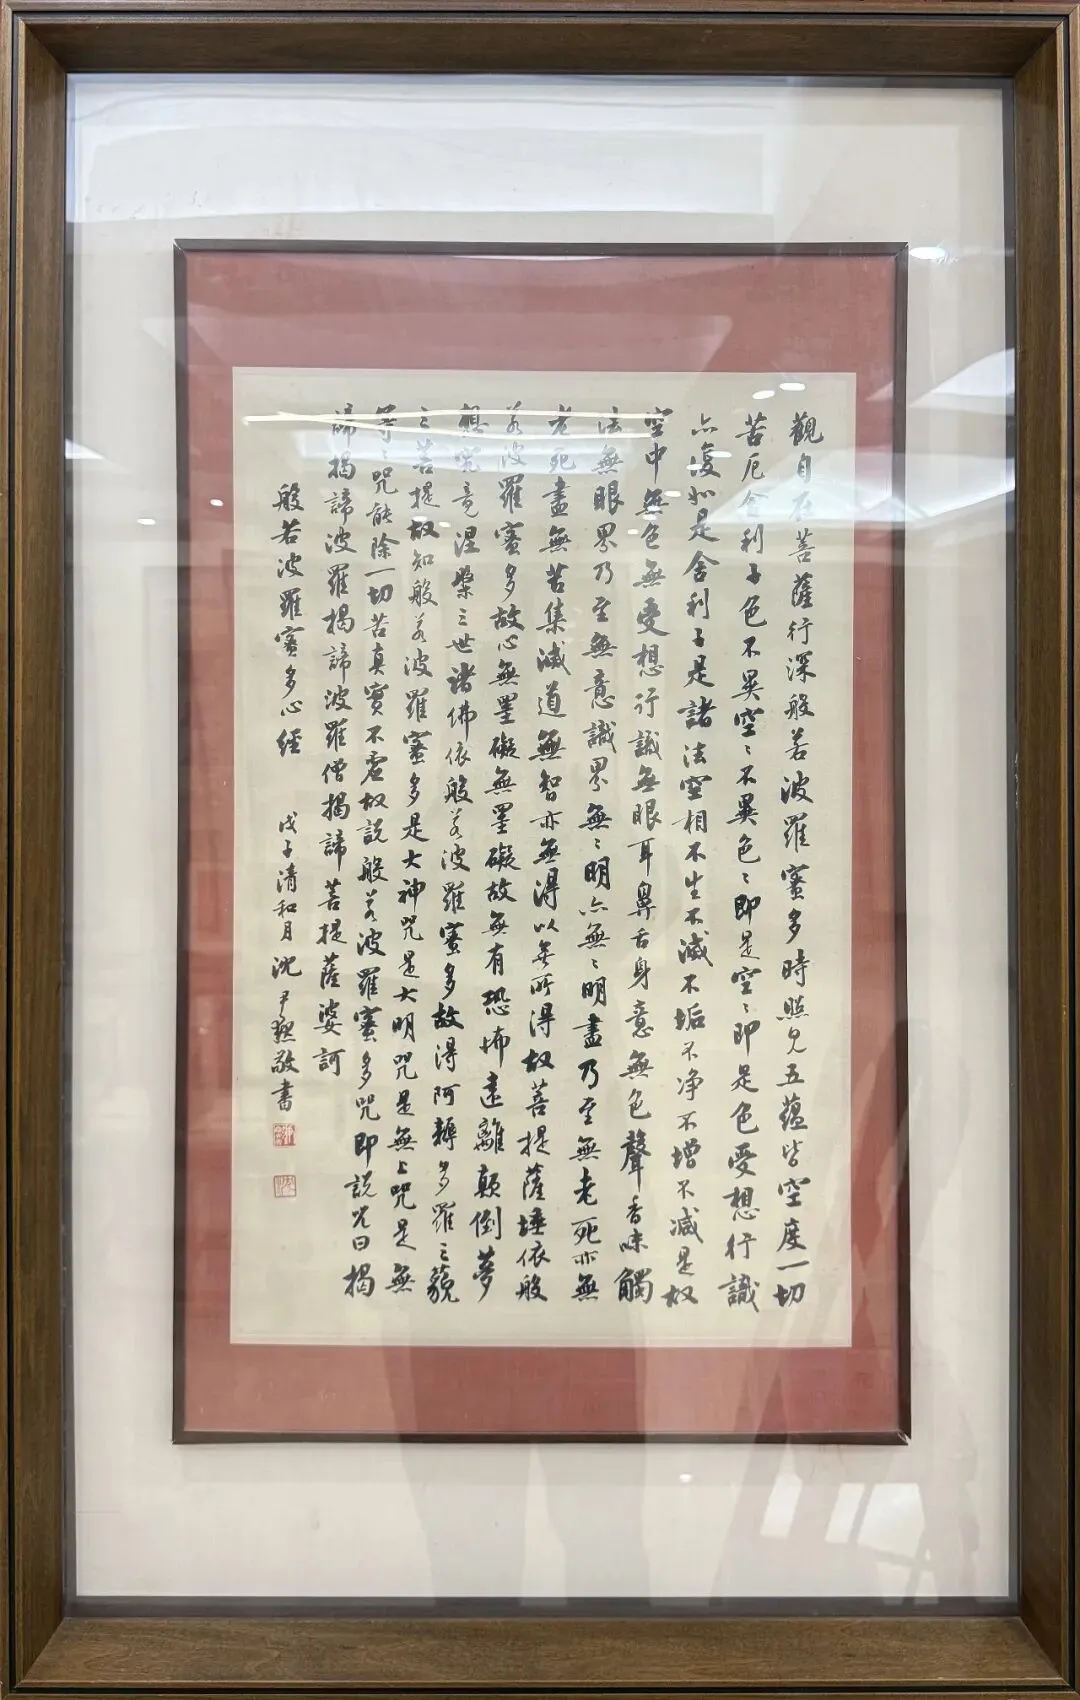 觀自在菩薩行深般若波羅蜜多時照見五蘊皆空度一切
苦厄舍利子色不異空〻不異色〻即是空〻即是色受想行識
亦復如是舍利子是諸法空相不生不滅不垢不净不增不減是故
空中無色無受想行識無眼耳鼻舌身意無色聲香味觸
法無眼界乃至無意識界無〻明亦無〻明盡乃至無老死亦無
老死盡無苦集滅道無智亦無得以無所得故菩提薩埵依般
若波羅蜜多故心無罣礙無罣礙故無有恐怖遠離顛倒夢
想究竟涅槃三世諸佛依般若波羅蜜多故得阿耨多羅三藐
三菩提故知般若波羅蜜多是大神咒是大明咒是無上咒是無
等〻咒能除一切苦真實不虛故說般若波羅蜜多咒即說咒曰揭
諦揭諦波羅揭諦波羅僧揭諦菩提薩婆訶
般若波羅蜜多心經 戊子清和月沈尹默敬書